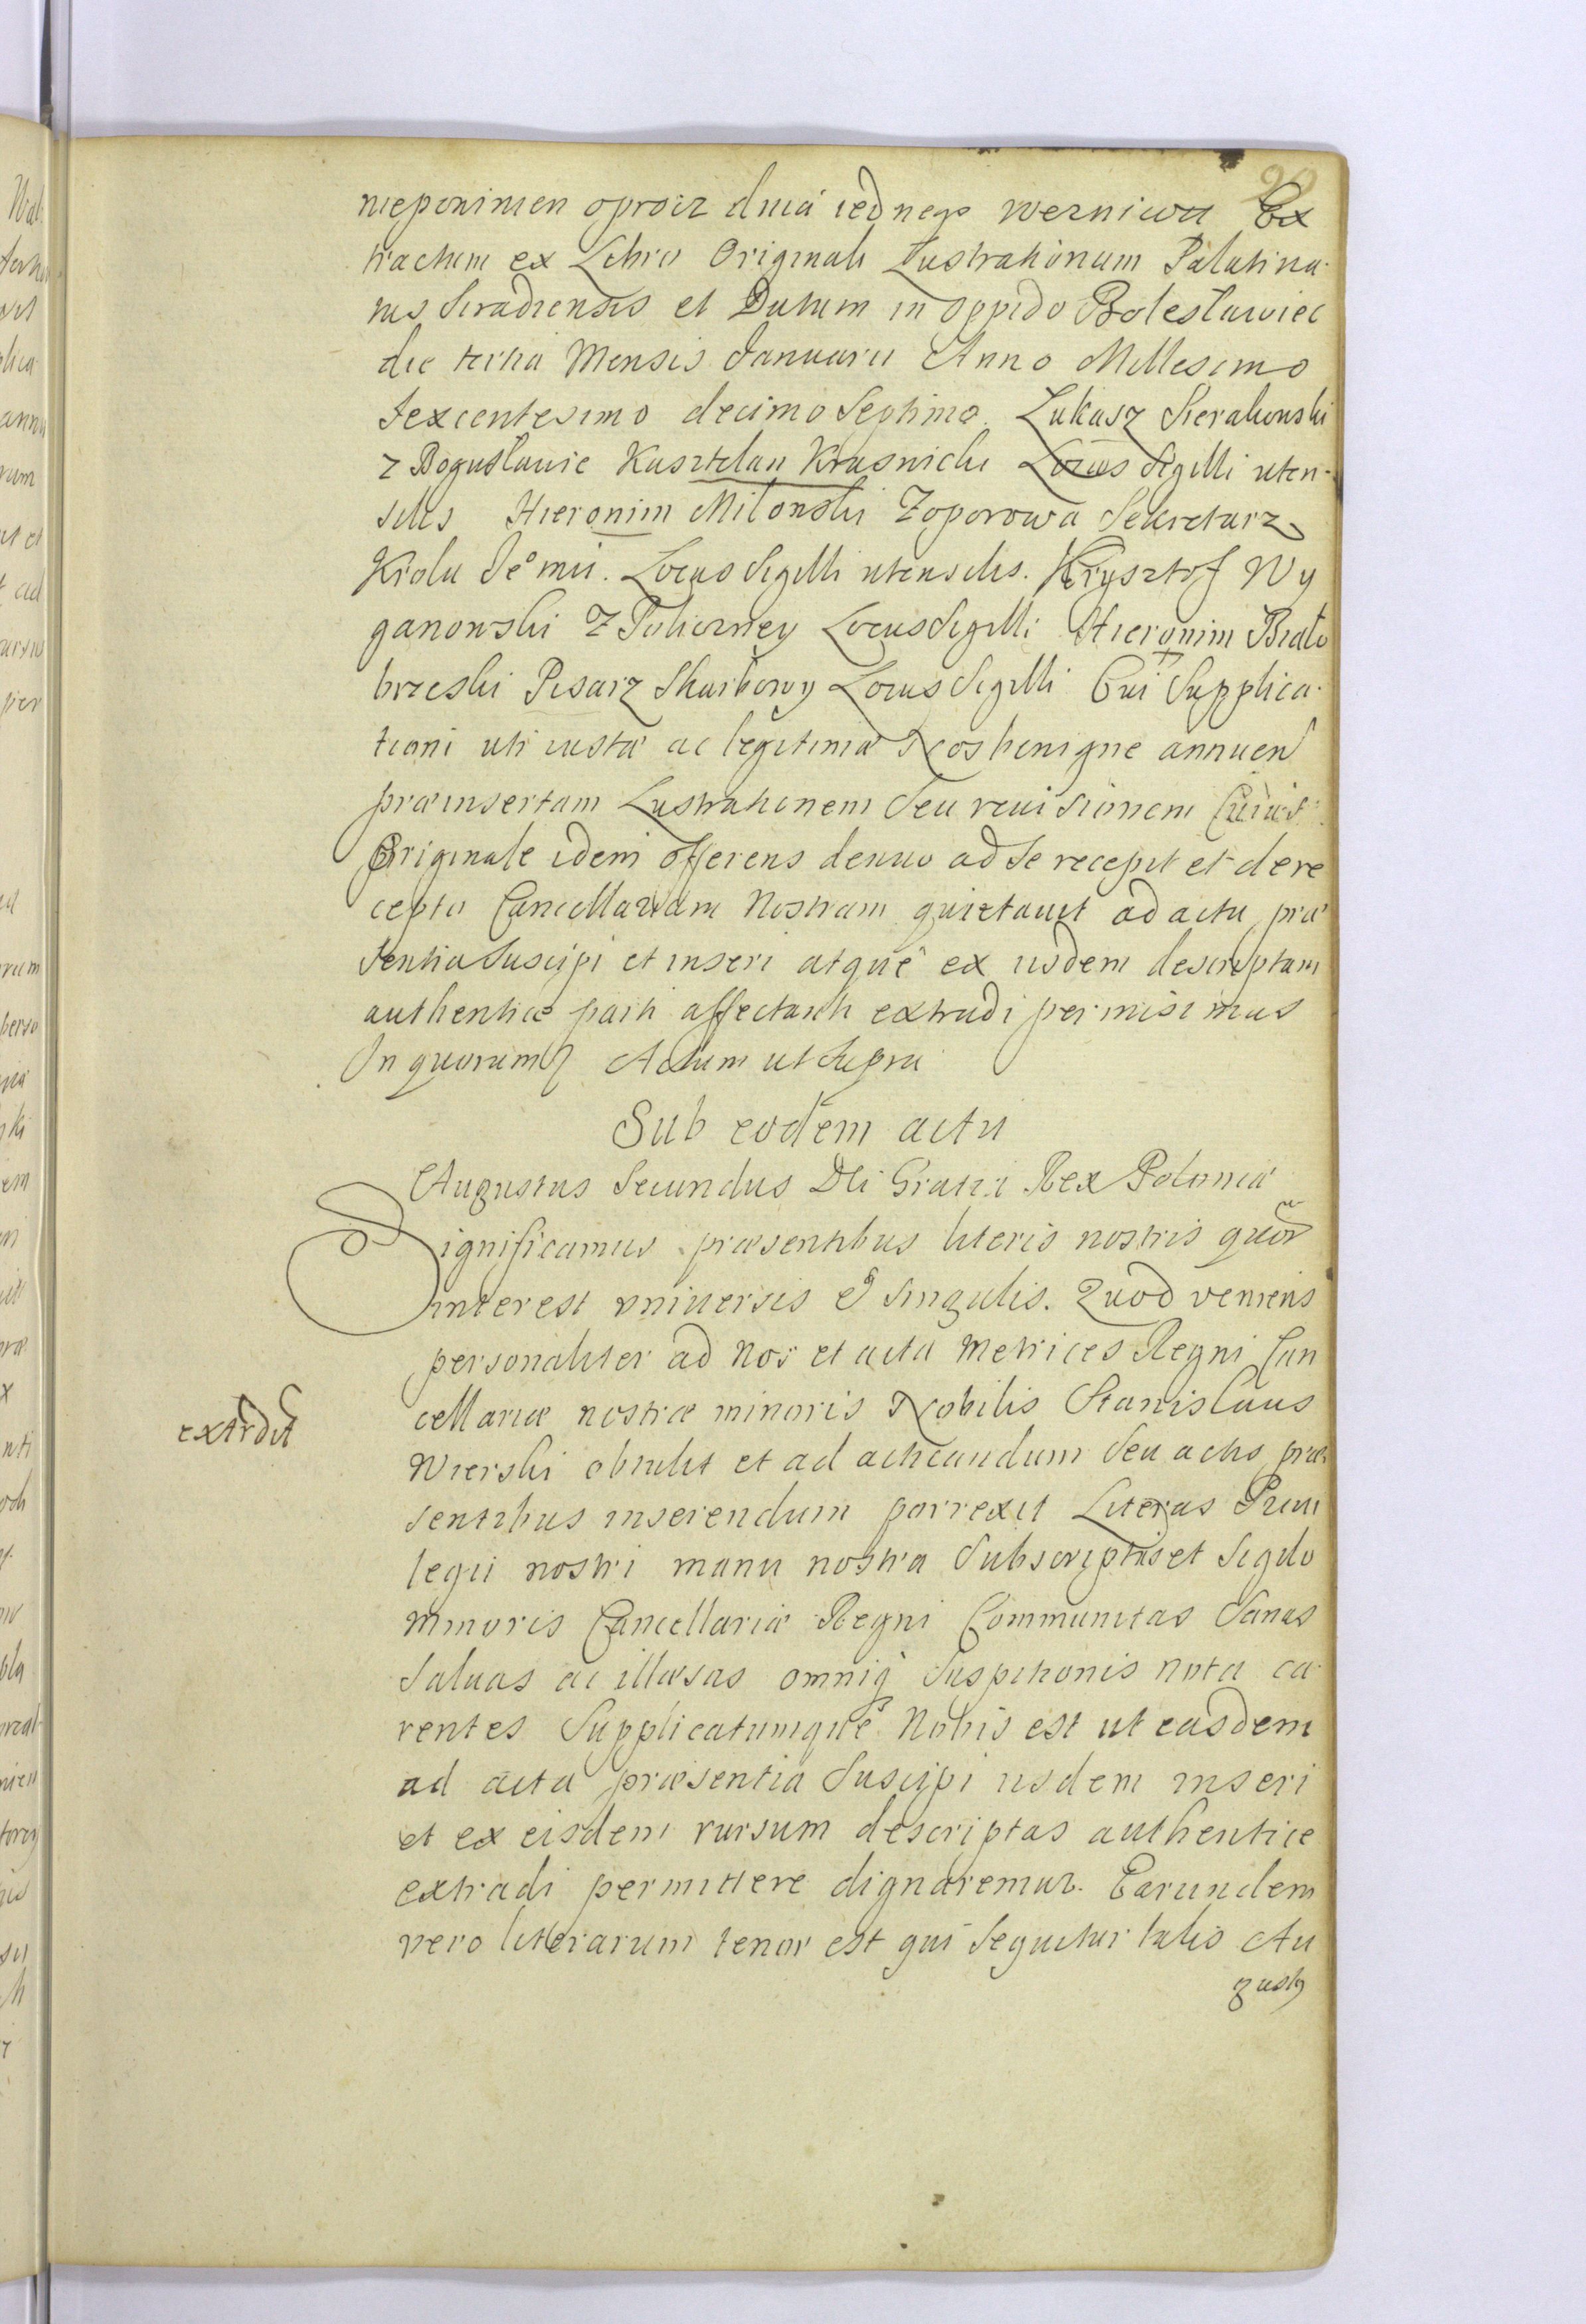 nieponinien oprocz dnia iednego w czniwa Ex
tractum ex Libro Originali Lustrationum Palatina-
tus Siradiensis et Datum in oppido Bolesławiec
die tertia Mensis Januarii Anno Millesimo
Sexcentesimo decimo Septimo. Łukasz Sierakowski
z Bogusławic Kasztelan Kruswicki Locus Sigilli uten-
silis Hieronim Milonski Zoporowa Sekretarz
Krola Je° mci. Locus Sigilli utensilis. Krysztof Wy
ganowski Z Locus Sigilli Hieronim Biało
brzeski Pisarz Skarbowy Locus Sigilli Cui Supplica-
tioni uti iustæ ac legitimæ Nos benigne annuen
præinsertam Lustrationem Seu reuisionem Cuius
Originale idem offerens denuo ad Se recepit et de re
cepto Cancellariam Nostram quietauit ad acta præ
sentia Suscipi et inseri atque ex iisdem descriptam
authentice parti affectanti extradi permisimus
In quorum Actum ut Supra
Sub eodem actu
Augustus Secundus Dei Gratia Rex Poloniæ
Significamus præsentibus literis nostris quor
interest vniuersis & Singulis. Quod veniens
personaliter ad Nos et acta Metrices Regni Can
cellariæ nostræ minoris Nobilis Stanislaus
extrdit
Wierski obtulit et ad acticandum Seu actis præ
sentibus inserendum porrexit Literas Priui
legii nostri manu nostra Subscriptas et Sigilo
minoris Cancellariæ Regni Communitas Sanas
Saluas ac illæsas omniq Suspitionis nota ca-
rentes Supplicatumque Nobis est ut easdem
ad acta præsentia Suscipi iisdem inseri
et ex eisdem rursum descriptas authentice
extradi permittere dignaremur. Earundem
vero literarum tenor est qui Sequitur talis Au
gusty